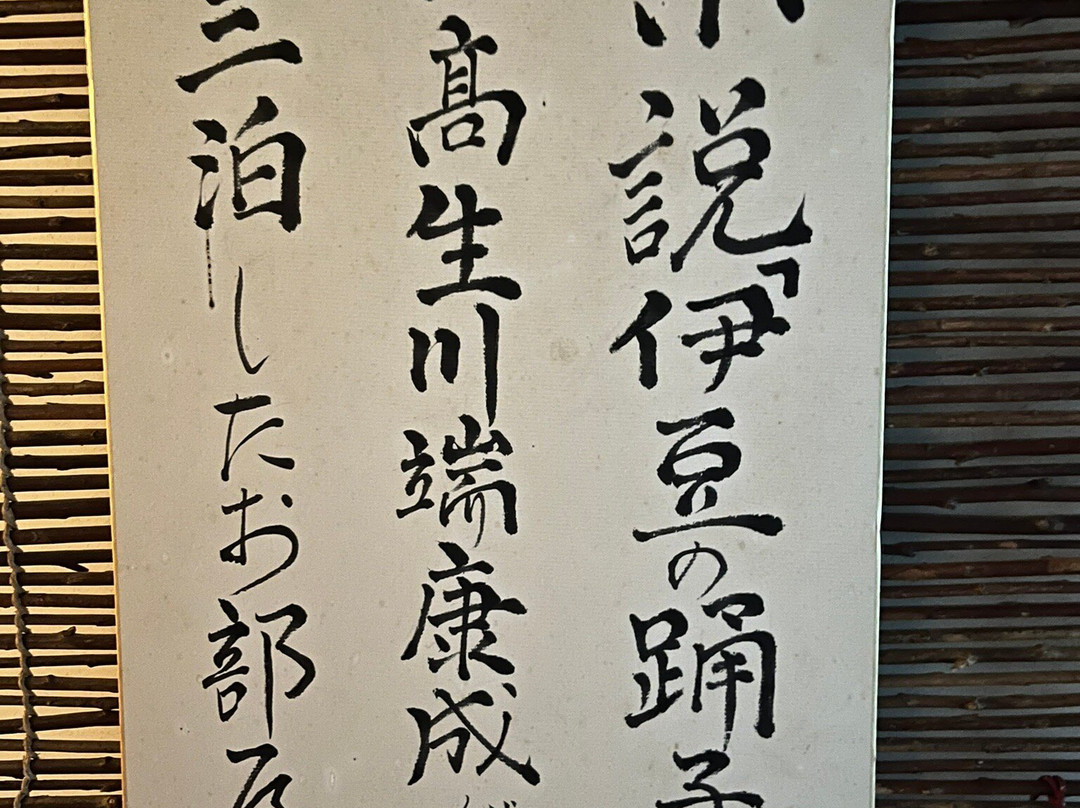 小説「伊豆の踊子
高生川端康成が
三泊したお部屋